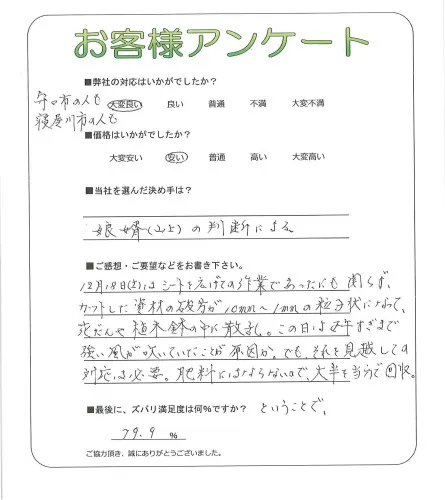 お客様アンケート
■弊社の対応はいかがでしたか?
守口市の人も
寝屋川市の人も
大変良い 良い 普通 不満 大変不満
■価格はいかがでしたか?
大変安い 安い 普通 高い 大変高い
■当社を選んだ決め手は?
娘婿(むこ)の判断による
■ご感想・ご要望などをお書き下さい。
12月18日(土)はシートを広げての作業であったにも関らず、
カットした資材の破片が10mm~1mmの粒子状になって、
花だんや植木鉢の中に散乱。この日は正午すぎまで
強い風が吹いていたことが原因か。でも、それを見越しての
対応は必要。肥料にはならないので、大半を当方で回収。
■最後に、ズバリ満足度は何%ですか? ということで、
79.9 %
ご協力頂き、誠にありがとうございました。